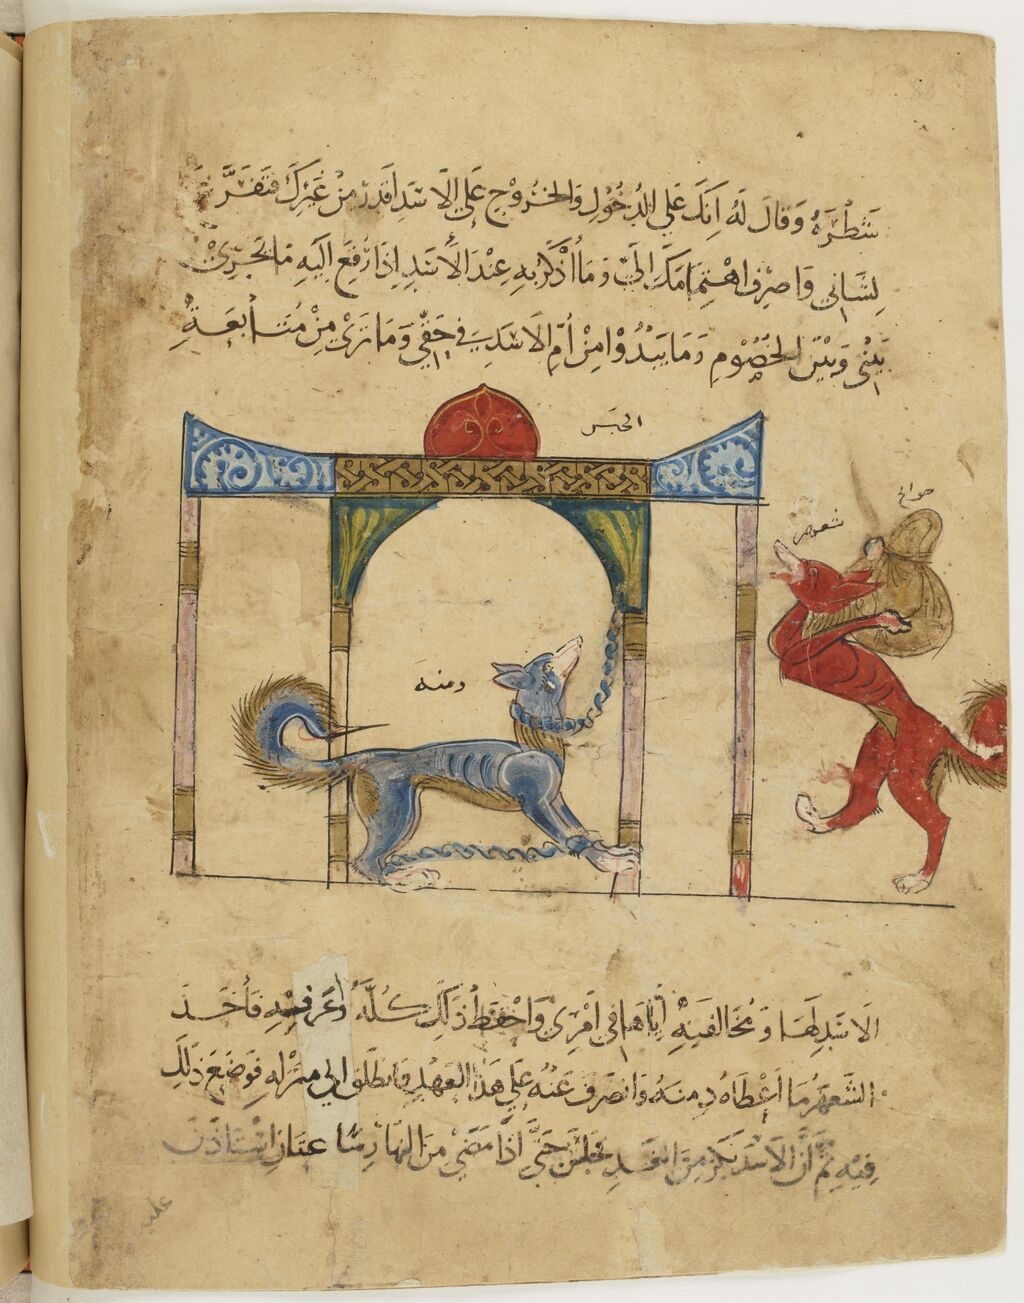 شَطْرَهُ وَقَالَ لَهُ اِنَّكَ عَلَى الدُّخُولِ وَالخُرُوْجِ عَلَى الاَسَدِ اَقْدَرُ مِنْ غَيْرِكَ فَتَفَرَّ
لِشَانِي وَاصْرِفِ اهْتِمَامَكَ اِلَيَّ وَمَا اُذْكَرُ بِهِ عِنْدَ الْاَسَدِ اِذَا رُفِعَ اِلَيْهِ مَا يَجْرِيْ
بَيْنِي وَبَيْنَ الخُصُوْمِ وَمَا يَبْدُوْا مِنْ اُمِّ الاَسَدِ فِي حَقِّي وَمَا تَرَىْ مِنْ مُتَابَعَةِ
الحبس
حوائج
شعهر
دمنه
الاَسَدِ لَهَا وَمُخَالَفَتِهِ اِيَّاهَا فِي اَمْرِىْ وَاحْفَظْ ذَلِكَ كُلَّهُ وَعَرِّفْنِيْهِ فَأَخَذَ
الشَّعْهَرُ مَا اَعْطَاهُ دِمْنَهُ وَانْصَرَفَ عَنْهُ عَلَى هَذَا العَهْدِ فَانْطَلَقَ اِلَى مَنْزِلِهِ فَوَضَعَ ذَلِكَ
فِيْهِ ثُمَّ اَنَّ الاَسَدَ بَكَّرَ مِنَ الغَدِ فَجَلَسَ حَتَّى اِذَا مَضَى مِنَ النَّهَارِ سَاعَتَانِ اسْتَاذَنَ
عليه